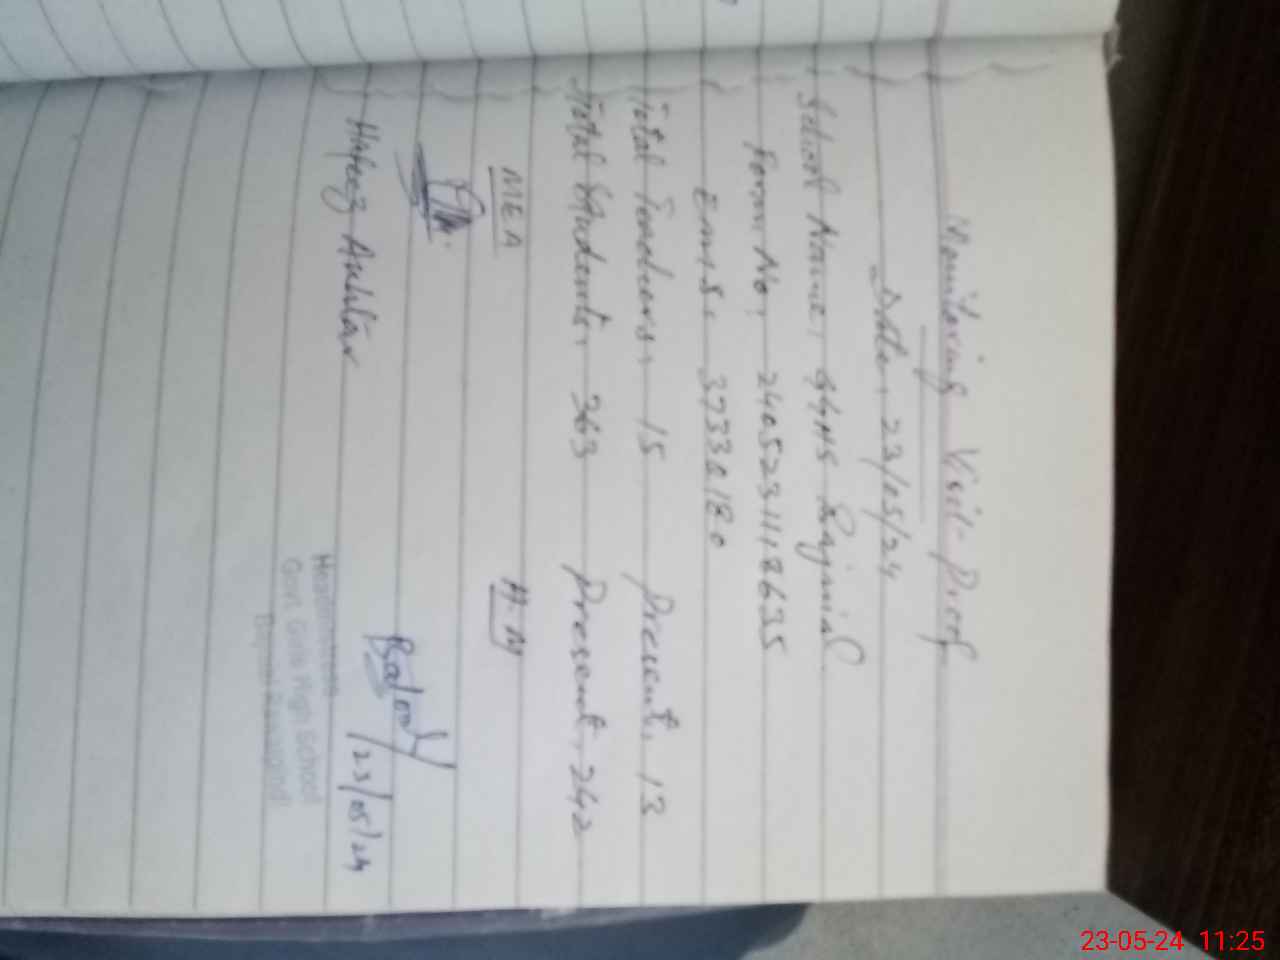 Monitoring Visit Proof
Date, 23/05/24
School Name, GGHS Rajmial
Form No, 2405231118635
Emis, 37330180
Total Teachers, 15 Present, 13
Total Students, 363 Present, 242
MEA H.M
Hafeez Akhtar 23/05/24
Headmistress
Govt. Girls High School
23-05-24 11:25